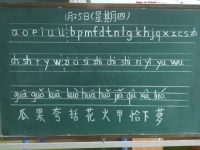 1月25日(星期四)
a o e i u ü b p m f d t n l g k h j q x z c s zh
ch sh r y w zi ci si zhi chi shi ri yi yu wu
guā guǒ kuā kuò huā huǒ jiā qià xià
瓜 果 夸 括 花 火 里 恰 下 萝